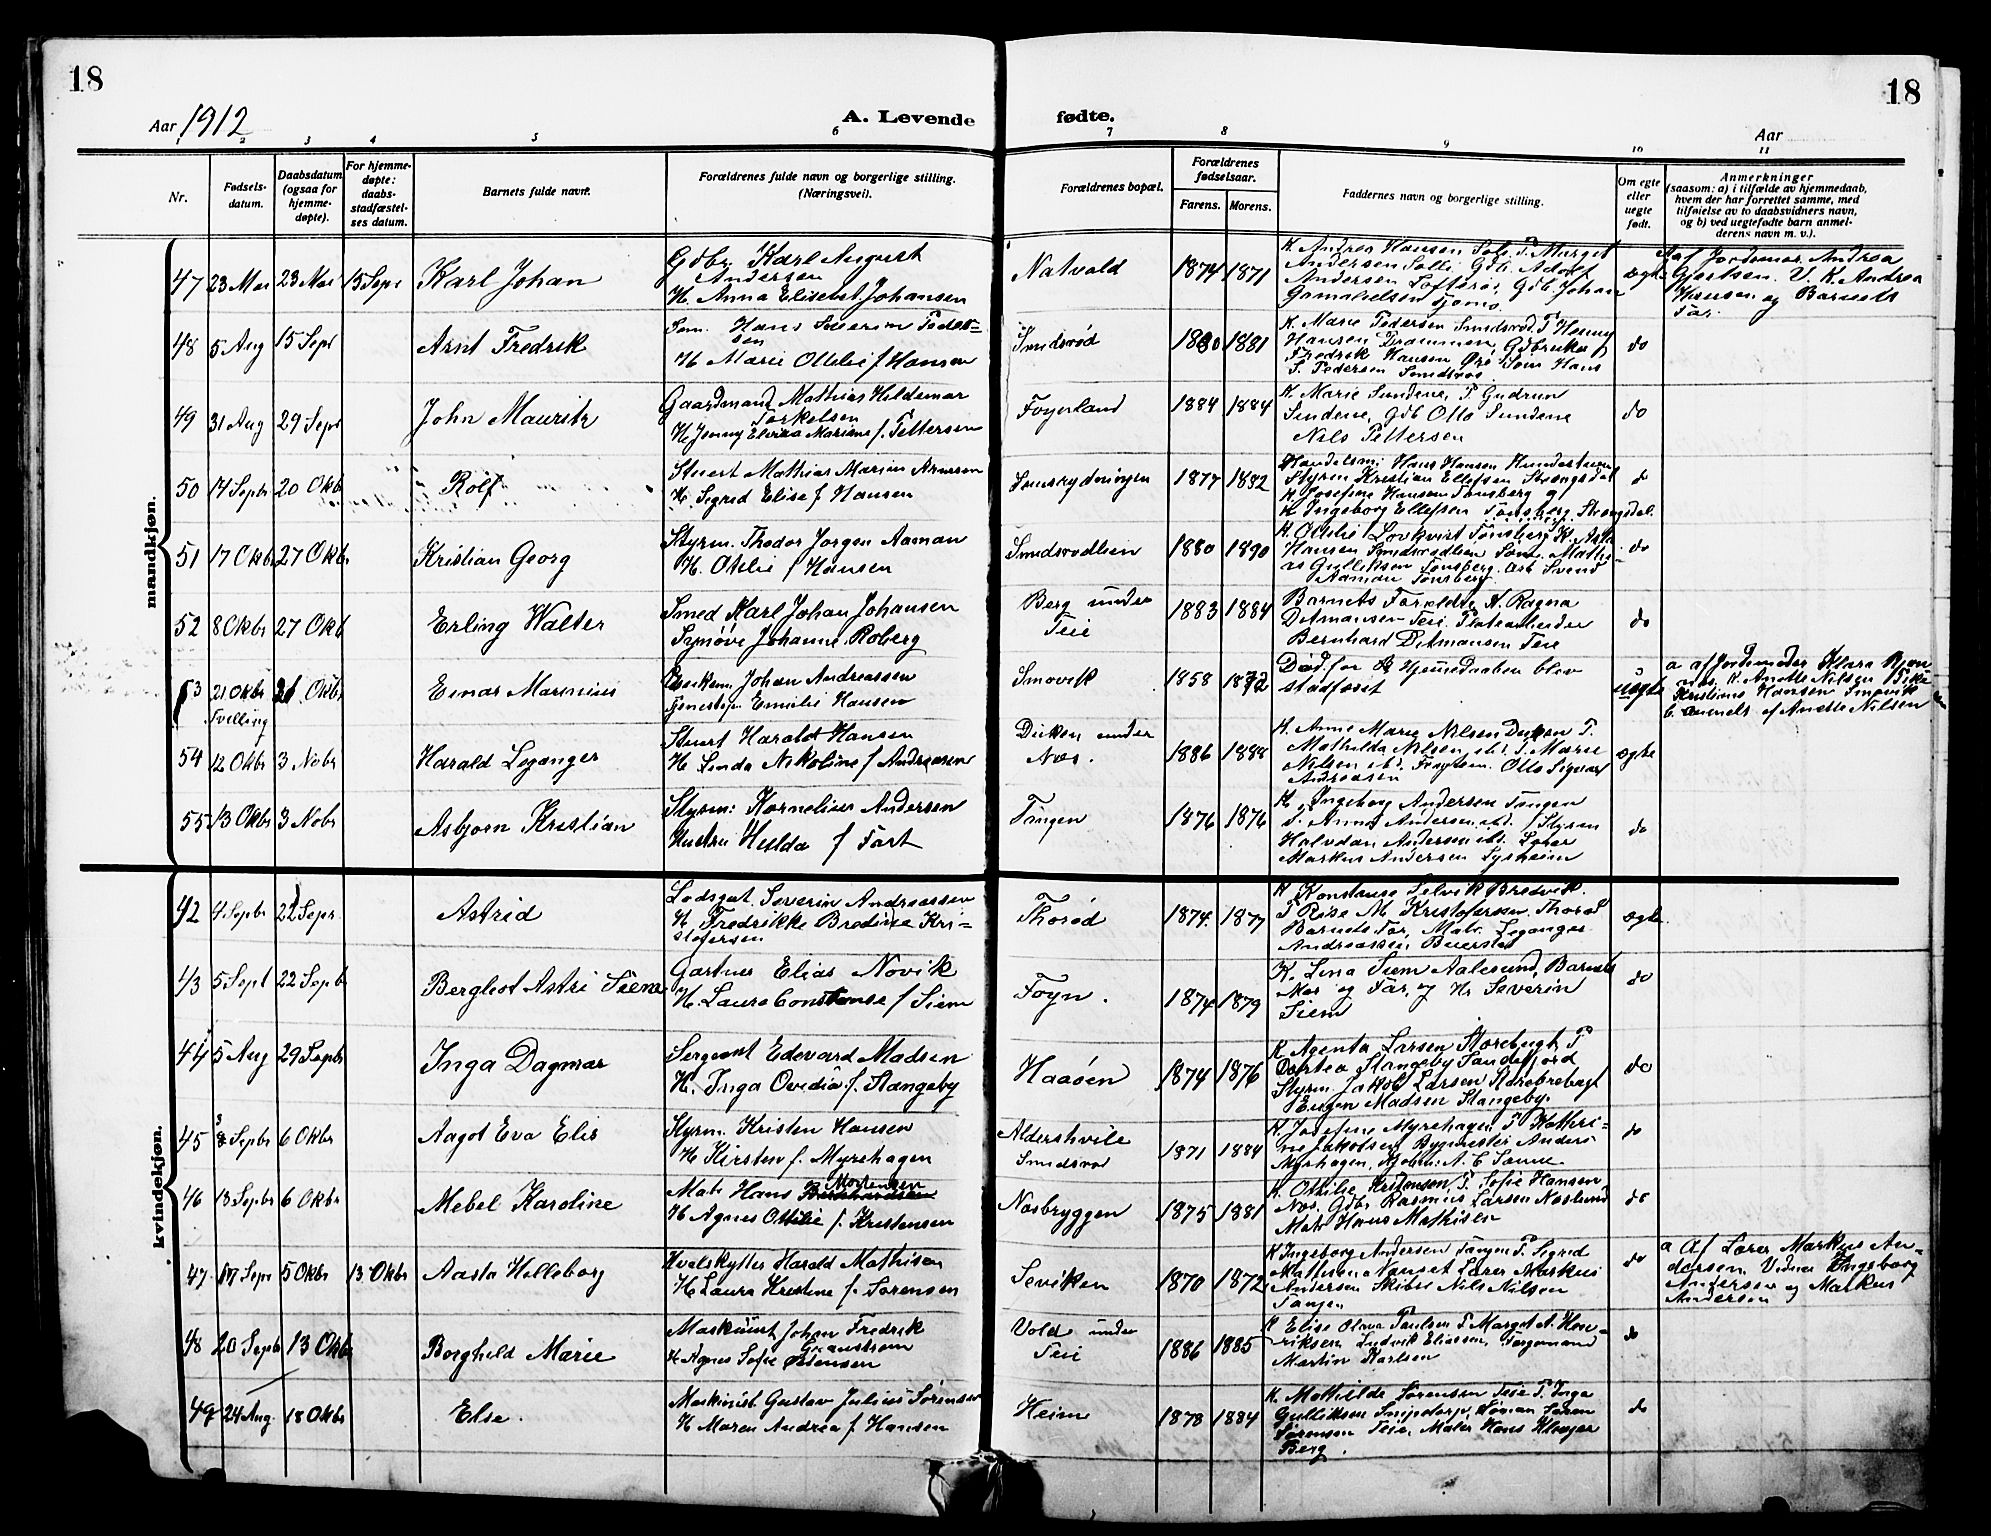 18
18
Aar 1912
A. Levende fødte.
Aar
1 2 3 4 5 6 7 8 9 10 11
Nr.
Fødsels-
datum.
Daabsdatum
(ogsaa for
hjemme-
døpte).
For hjemme-
døpte:
daabs-
stadfæstel-
ses datum.
Barnets fulde navn.
Forældrenes fulde navn og borgerlige stilling.
(Næringsvei).
Forældrenes bopæl.
Forældrenes
fødselsaar.
Farens. Morens.
Faddernes navn og borgerlige stilling.
Om egte
eller
uegte
født.
Anmerkninger
(saasom: a) i tilfælde av hjemmedaab,
hvem der har forrettet samme, med
tilføielse av to daabsvidners navn,
og b) ved uegtefødte barn anmel-
derens navn m. v.).
mandkjøn.
47 23 Mai 23 Mai 15 Sept Karl Johan
Gdbr. Karl August
Andersen
H. Anna Elisebet Johansen
Natvald 1874 1871
K. Andrea Hansen
Andersen Adolf
Andersen Gdb Johan
ægte
a af Jordemor Andrea
Gjertsen. V. K. Andrea
Hansen og Barnets
Far.
48 5 Aug 15 Sept Arnt Fredrik
Søm. Hans Severin Peder-
sen
H. Marie Ottilie f Hansen
Smidsrød 1880 1881
K. Marie Pedersen Smidsrød P Henny
Hansen Drammen, Gdbruker
Fredrik Hansen Søm Hans
S. Pedersen Smidsrød
do
49 31 Aug 29 Sept John Mauritz
Gaardmand Mathias Hildemar
Torkelsen
H Jenny Elvina Mariane f. Pettersen
Føynland 1884 1884
K. Marie Sundene, P. Gudrun
Sundene, Gdb Otto Sundene
Nils Pettersen
do
50 14 Septr 20 Okb Rolf
Stuert Mathias Marius Arnesen
H. Sigrid Elise f Hansen
1877 1882
Handelsm: Hans Hansen
Styrm Kristian Ellefsen
H Josefine Hansen Tønsberg og
H Ingeborg Ellefsen Tønsberg.
do
51 17 Okbr 27 Okbr Kristian Georg
Styrm. Thodor Jørgen Aaman
H. Otilie f Hansen
Smidsrødlien 1880 1890
K. Ottilie Løvkvist Tønsberg K.
Hansen Smidsrødlien Søm. Mathi-
as Gulliksen Tønsberg. Arb Svend
Aaman Tønsberg
do
52 8 Okbr 27 Okb Erling Walter
Smed Karl Johan Johansen
Synøve Johanne Roberg
Berg under
Teie
1883 1884
Barnets Forældre, H. Ragna
Ditmansen Teie Platearbeider
Bernhard Ditmansen Teie
do
53 21 Okbr 21. Okbr Einar Marinius
Tvilling
Johan Andreassen
Emilie Hansen
Smovik 1858 1872
Død før Hjemmedaaben blev
stadfæst
uægte
a af Jordemoder Klara
K Anette Nilsen Pike
Kristiane Hansen Smovik
b. anmeldt af Anette Nilsen
54 12 Okbr 3 Nobr Harald Leganger
Stuert Harald Hansen
H Linda Nikoline f Andreasen
Dirken under
Næs.
1886 1888
K. Anne Marie Nilsen Dirken P.
Mathilda Nilsen ibd. P. Marie
Nilsen ibd. Otto Sigvard
Andreasen
ægte
55 13 Okbr 3 Nobr Asbjørn Kristian
Styrm: Kornelius Andersen
Hustru Hilda f Fart
Tangen 1876 1876
K. Ingeborg Andersen Tangen
P. Anna Andersen ibd. Styrm
Halvdan Andersen ibd. Lærer
Markus Andersen
do
kvindekjøn.
42 4 Septbr 22 Septr. Astrid
Lodsgut Severin Andreassen
H. Fredrikke Bredine Kri-
stofersen
Thorød 1874. 1877
K Konstanse Selvik Bredvik.
P Rise M. Kristofersen. Thorød
Barnets Far, Matr. Leganger
Andreassen
ægte
43 5 Sept 22 Septb Bergliot Astri Siem
Gartner Elias Novik
H. Laura Constanse f Siem
Føyn. 1874 1879
K. Lina Siem Aalesund, Barnets
Mor og Far, og Hr Severin
Siem
do
44 5 Aug 29 Septbr Inga Dagmar
Sergeant Edevard Madsen
H. Inga Ovedia f. Stangeby
Haaøen 1874 1876
K. Agenta Larsen Storebugt P.
Dortea Stangeby Sandefjord
Styrm. Jakob Larsen
Eugen Madsen Stangeby.
do
45 8 Septbr 6 Okbr Aagot Eva Elis
Styrm. Kristen Hansen
H Kirsten f. Myrehagen
Aldershvile
Smidsrød
1871 1884
K Josefine Myrehagen P Kathri-
ne Jakobsen Bygmester Anders
Myrhagen,
do
46 18 Septbr 6 Okbr Mebel Karoline
Matr Hans Mortensen
H Agnes Ottilie f. Kristensen
Næsbryggen 1875 1881
K. Ottilie Kristensen P. Sofie Hansen
Næs. Gdbr Rasmus Larsen Næslund
Matr Hans Mathisen
do
47 17 Septr 5 Okbr 13 Okbr Aasta Helleborg
Hvalskytter Harald Mathisen
H. Laura Kristine f. Sørensen
Seviken 1870 1872
K Ingeborg Andersen Tangen P. Sigrid
Mathisen Nanset Lærer Markus
Andersen Skibsr Nils Nilsen
Tangen
do
a Af Lærer Markus An-
dersen. Vidner Ingeborg
Andersen og Markus
Andersen
48 20 Septb 13 Okbr Borghild Marie
Maskinist Johan Fredrik
Granstrøm
H Agnes Sofie Østensen
Vold under
Teie
1886 1885
K Elise Olava Paulsen P Margot A. Hen-
riksen Ludvik Eliassen, Færgemand
Martin Karlsen
do
49 24 Aug. 18 Okbr Else.
Maskinist Gustav Julius Sørensen
H Maren Andrea f Hansen
Heim 1878 1884
K. Mathilde Sørensen Teie P. Inga
Gulliksen Søman Søren
Sørensen Teie, Maler Hans Kløvjer
Berg.
do